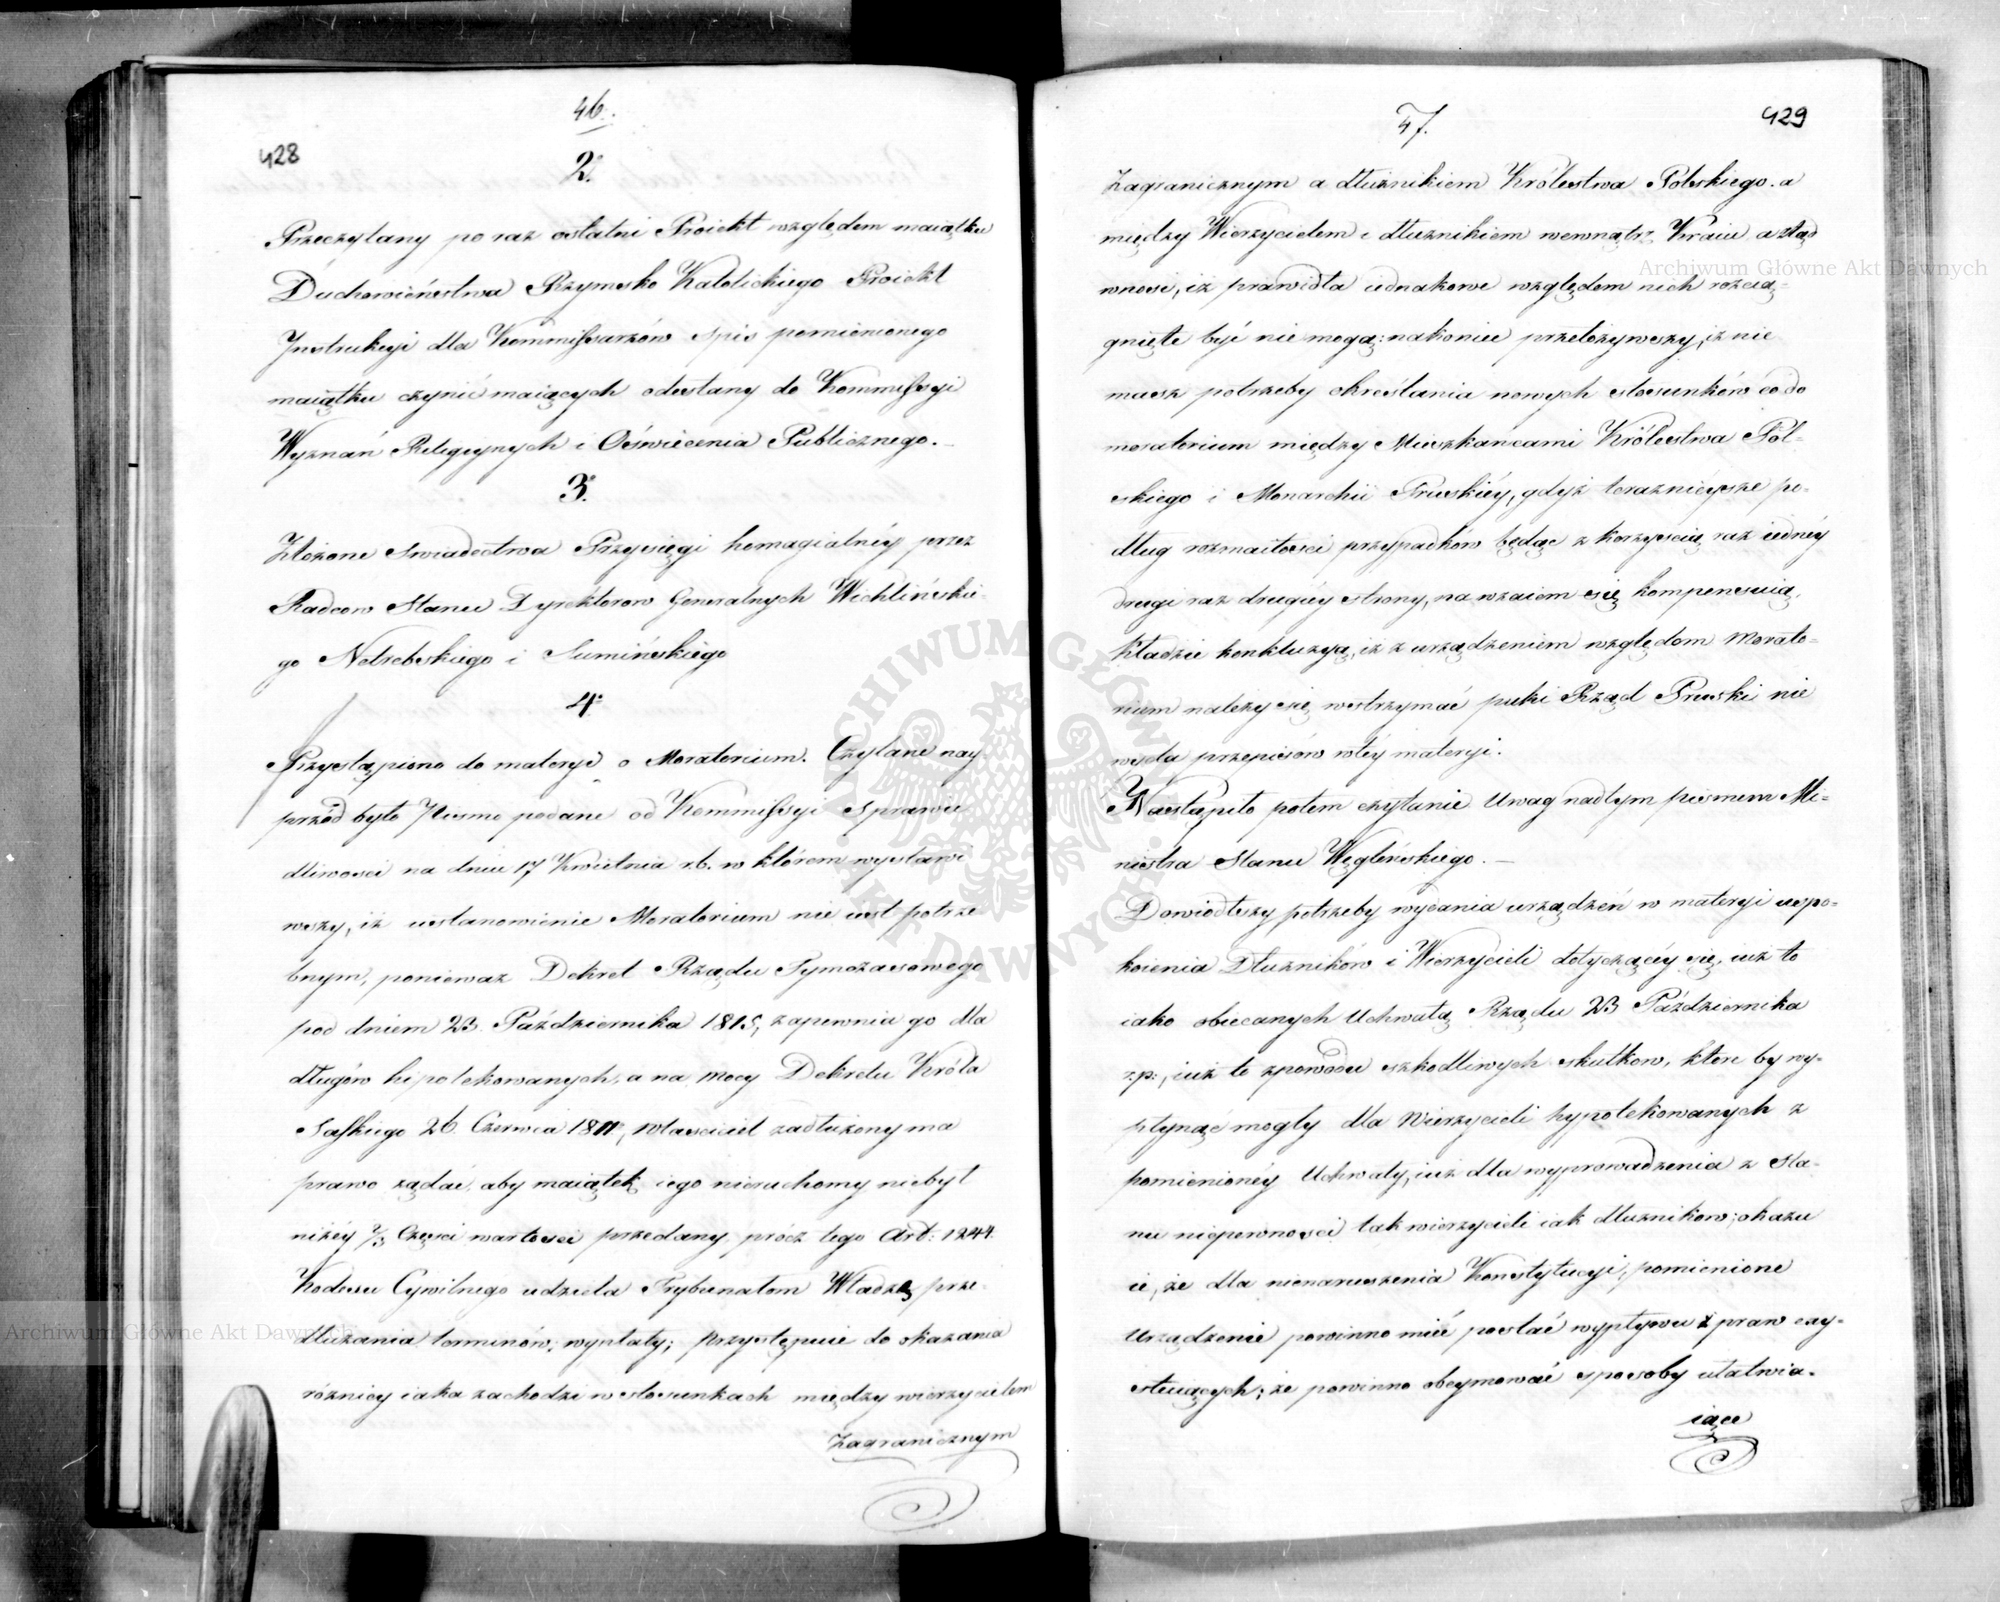 46.
428
2.
Przeczytany po raz ostatni Proiekt względem maiątku
Duchowieństwa Rzymsko Katolickiego Proiekt
Instrukcyi dla Kommissarzów spis pomienionego
maiątku czynić maiących odesłany do Kommissyi
Wyznań Religiynych i Oświecenia Publicznego. —
3.
Złożone Swiadectwa Przysięgi homagialnéy przez
Radcow Stanu Dyrektorow Generalnych Wichlińskie-
go Netrebskiego i Sumińskiego
4.
Przystąpiono do materyi o Moratorium. Czytane nay-
przód było Pismo podane od Kommissyi Sprawie
dliwosci na dniu 17 Kwietnia r.b. w którem wystawi
wszy, iż ustanowienie Moratorium nie iest potrze
bnym, ponieważ Dekret Rządu Tymczasowego
pod dniem 23 Października 1815, zapewnia go dla
długów hipotekowanych, a na mocy Dekretu Króla
Saskiego 26 Czerwca 1811, właściciel zadłużony ma
prawo żądać, aby maiątek iego nieruchomy niebył
niżéy 2/3 Częsci wartosci przedany, prócz tego Art: 1244.
Kodexu Cywilnego udziela Trybunałom Władzę prze-
dłużania terminów, wypłaty; przystępuie do okazania
różnicy iaka zachodzi w stosunkach między wierzycielem
Zagranicznym
47.
429
Zagranicznym a dłużnikiem Królestwa Polskiego. a
między Wierzycielem i dłużnikiem wewnątrz Kraiu, a ztąd
wnosi, iż prawidła iednakowe względem nich rozcią-
gnięte być nie mogą: nakoniec przełożywszy, iż nie
masz potrzeby określania nowych stosunków co do
moratorium między Mieszkańcami Królestwa Pol-
skiego i Monarchii Pruskiéy, gdyż teraznieysze po-
dług rozmaitosci przypadków będąc z korzyscią raz iednéy
drugi raz drugiéy strony, na wzaiem się kompensuią,
kładzie konkluzyą, iż z urządzeniem względem Morato-
rium należy się wstrzymać puki Rząd Pruski nie
wyda przepisów w téy materyi.
Nastąpiło potem czytanie Uwag nad tym pismem Mi-
nistra Stanu Węgleńskiego. —
Dowiodłszy potrzeby wydania urządzeń w materyi uspo-
koienia Dłużników i Wierzycieli dotyczącéy się, iuż to
iako obiecanych Uchwałą Rządu 23 Października
r.p:, iuż to z powodu szkodliwych skutkow, które by wy-
płynąć mogły dla Wierzycieli hypotekowanych z
pomienionéy Uchwały, iuż dla wyprowadzenia z sta-
nu niepewnosci tak wierzycieli iak dłużnikow; okazu
ie, że dla nienaruszenia Konstytucyi, pomienione
Urządzenie powinno mieć postać wypływu z praw exy-
stuiących; że powinno obeymować sposoby ułatwia-
iące
ARCHIWUM GŁÓWNE AKT DAWNYCH
Archiwum Główne Akt Dawnych
Archiwum Główne Akt Dawnych